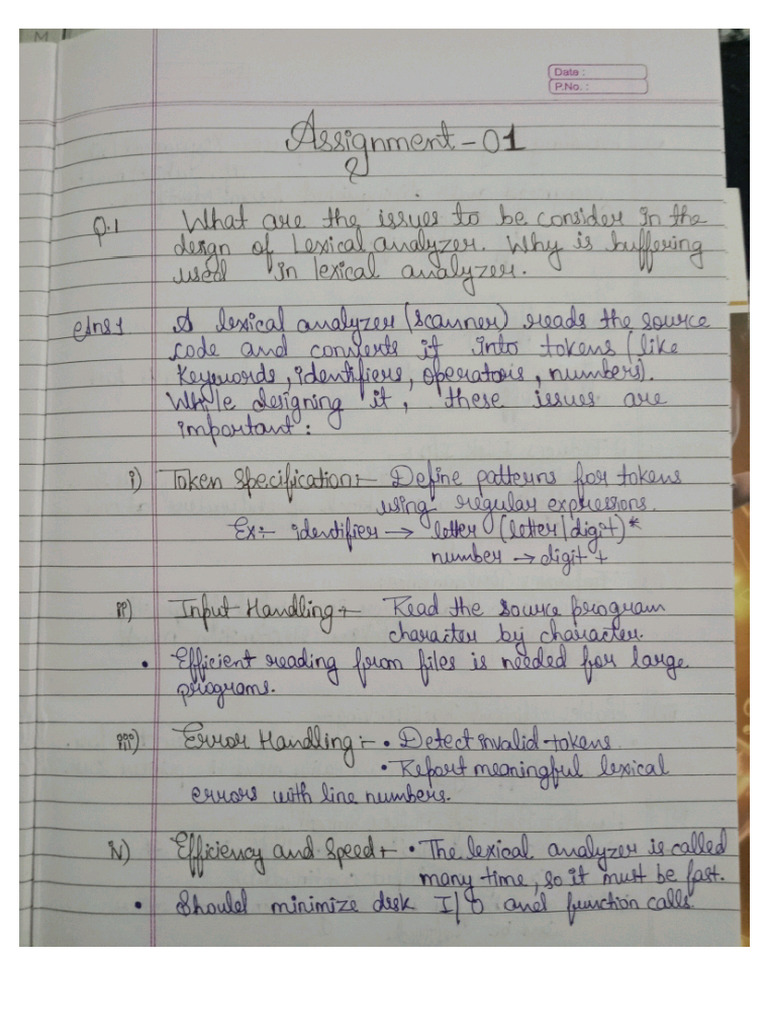 M
Date :
P.No. :
Assignment - 01
Q.1 What are the issues to be consider in the
design of Lexical analyzer. Why is buffering
used in lexical analyzer.
Ans 1 A lexical analyzer (scanner) reads the source
code and converts it into tokens (like
Keywords, identifiers, operators, numbers).
While designing it, these issues are
important:
i) Token Specification:- Define patterns for tokens
using regular expressions.
Ex:- identifier → letter (letter/digit)*
number → digit +
ii) Input Handling :- Read the source program
character by character.
• Efficient reading from files is needed for large
programs.
iii) Error Handling :- • Detect invalid tokens.
• Report meaningful lexical
errors with line numbers.
iv) Efficiency and Speed :- • The lexical analyzer is called
many time, so it must be fast.
• Should minimize disk I/O and function calls.